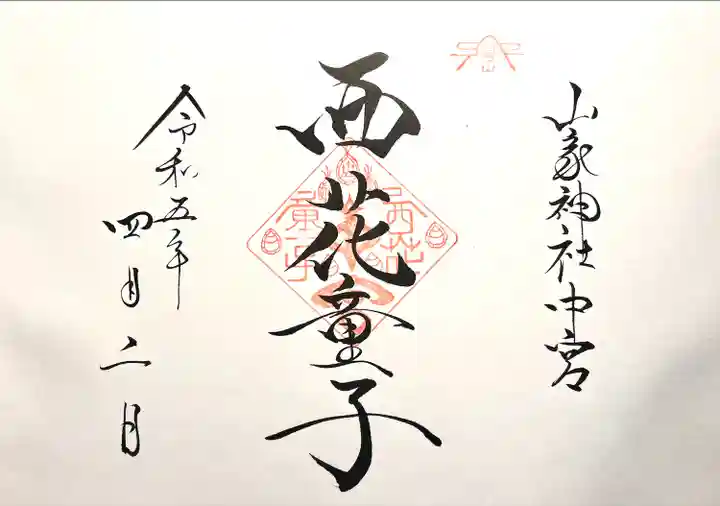 山家神社中宮
西花童子
西花
童子
令和五年
四月二日